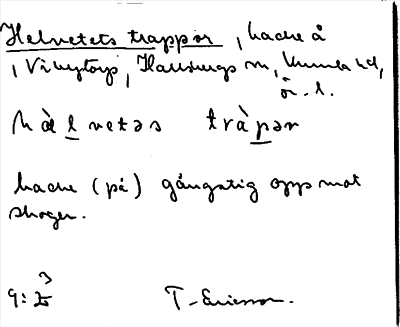 Helvetets trappor, backe å
, Vibytorp, Hallsbergs sn, Kumla hd,
ör. l.
hàlvetəs tràpər
backe (på) gångstig opp mot
skogen.
9:3 T. Ericsson.